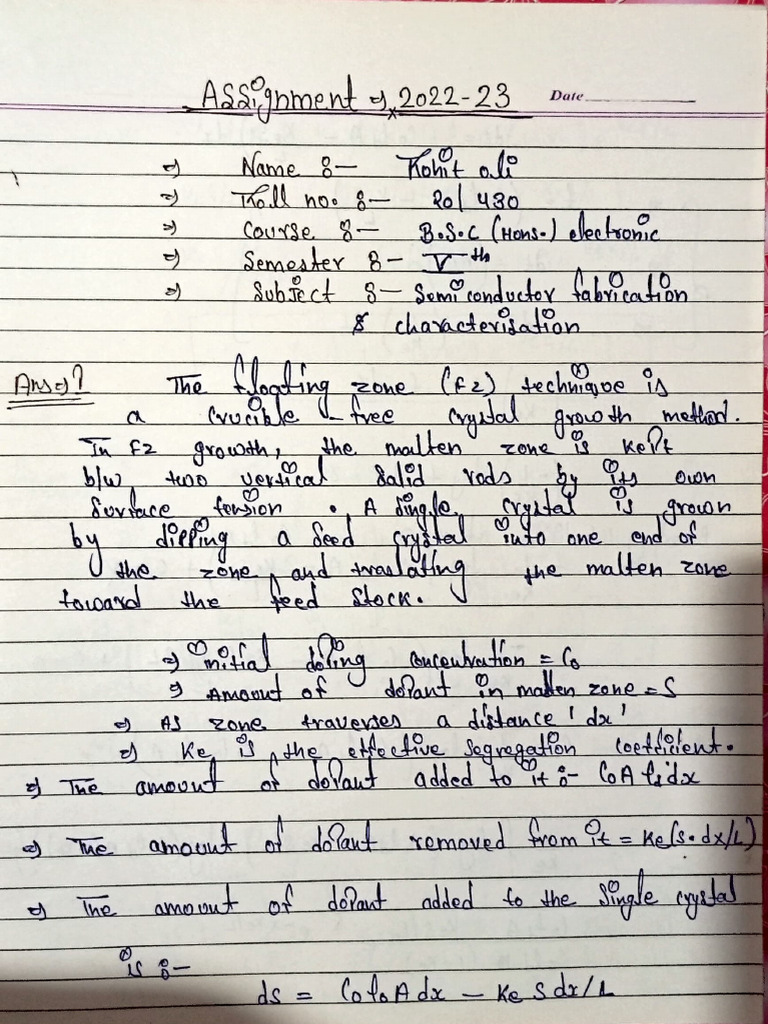 Assignment ⇒ 2022-23 Date
⇒ Name :- Rohit ali
⇒ Roll no. :- 20/430
⇒ Course :- B.S.C (Hons.) electronic
⇒ Semester :- Vth
⇒ Subject :- Semiconductor fabrication
& characterisation
Ans⇒? The floating zone (fz) technique is
a crucible-free crystal growth method.
In fz growth, the malten zone is kept
b/w two vertical salid rods by its own
surface tension. A single crystal is grown
by dipping a seed crystal into one end of
the zone and traslating the malten zone
toward the feed stock.
⇒ initial doping concentration = C₀
⇒ Amount of dopant in malten zone = S
⇒ As zone traverses a distance 'dx'
⇒ Ke is the effective segregation coefficient.
⇒ The amount of dopant added to it :- C₀A dx
⇒ The amount of dopant removed from it = Ke(s.dx/L)
⇒ The amount of dopant added to the single crystal
is :-
ds = C₀ρ₀A dx - Ke S dx/L